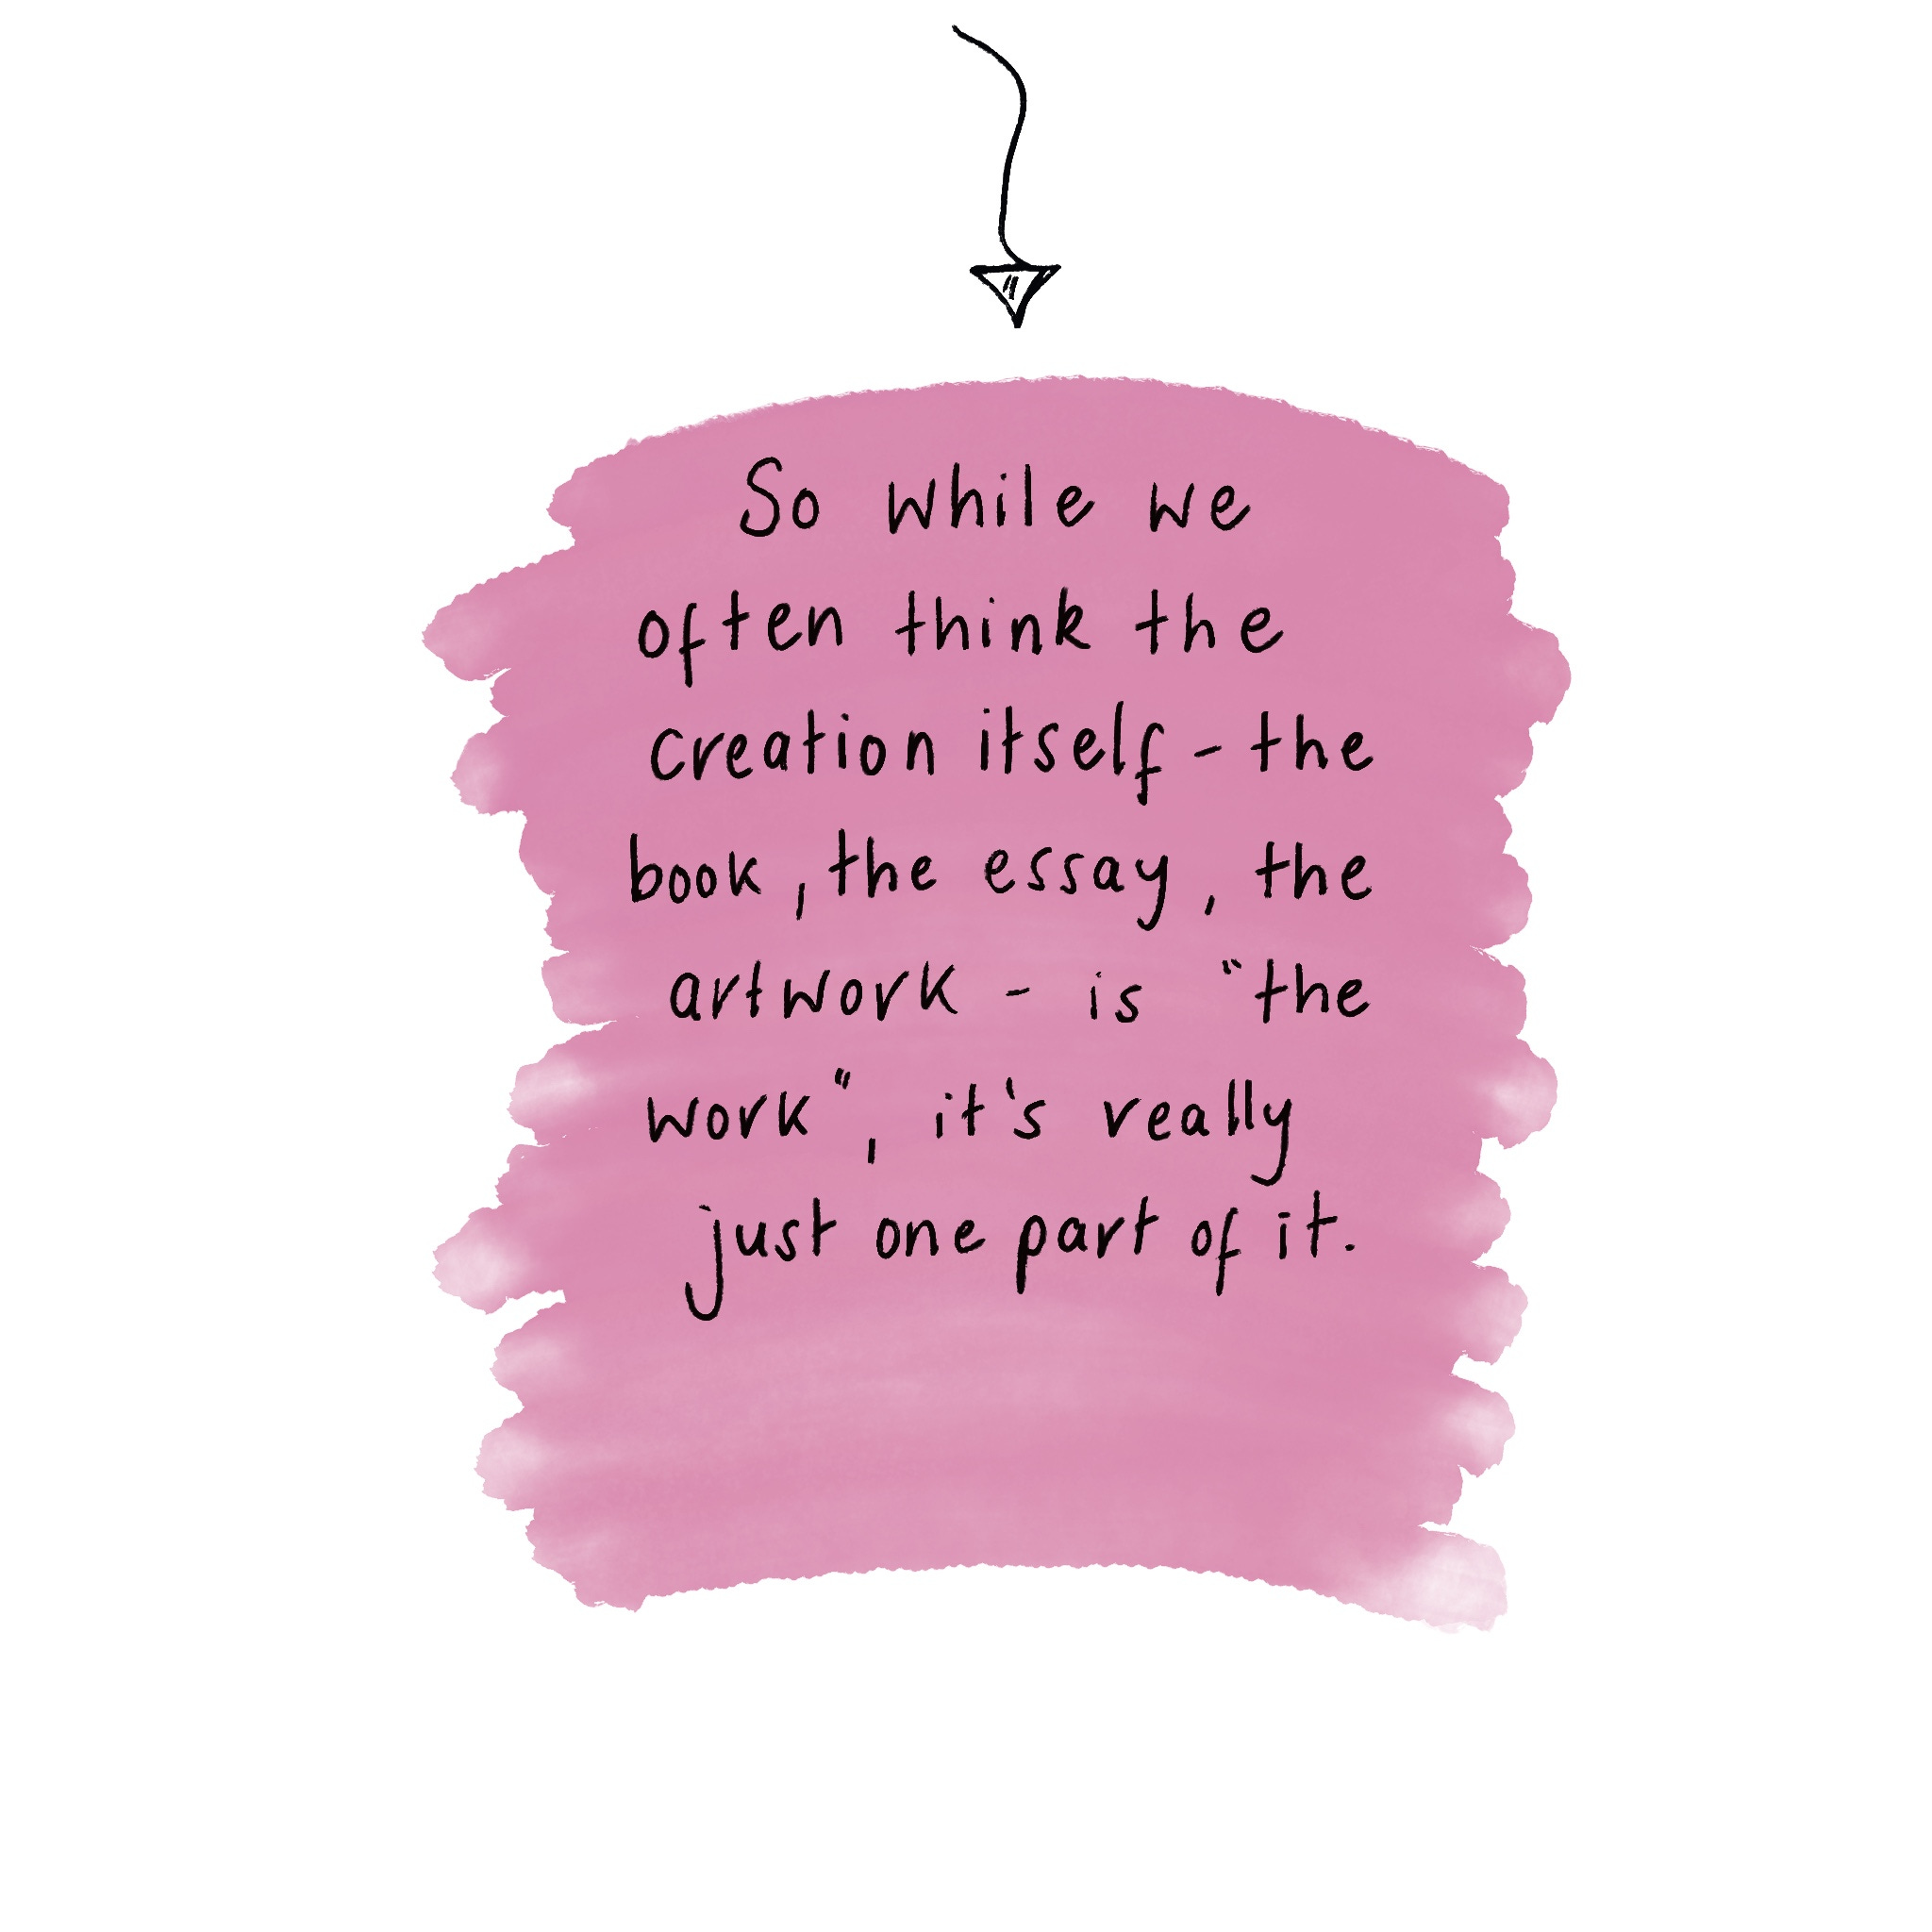 So while we
often think the
creation itself - the
book, the essay, the
artwork - is "the
work", it's really
just one part of it.